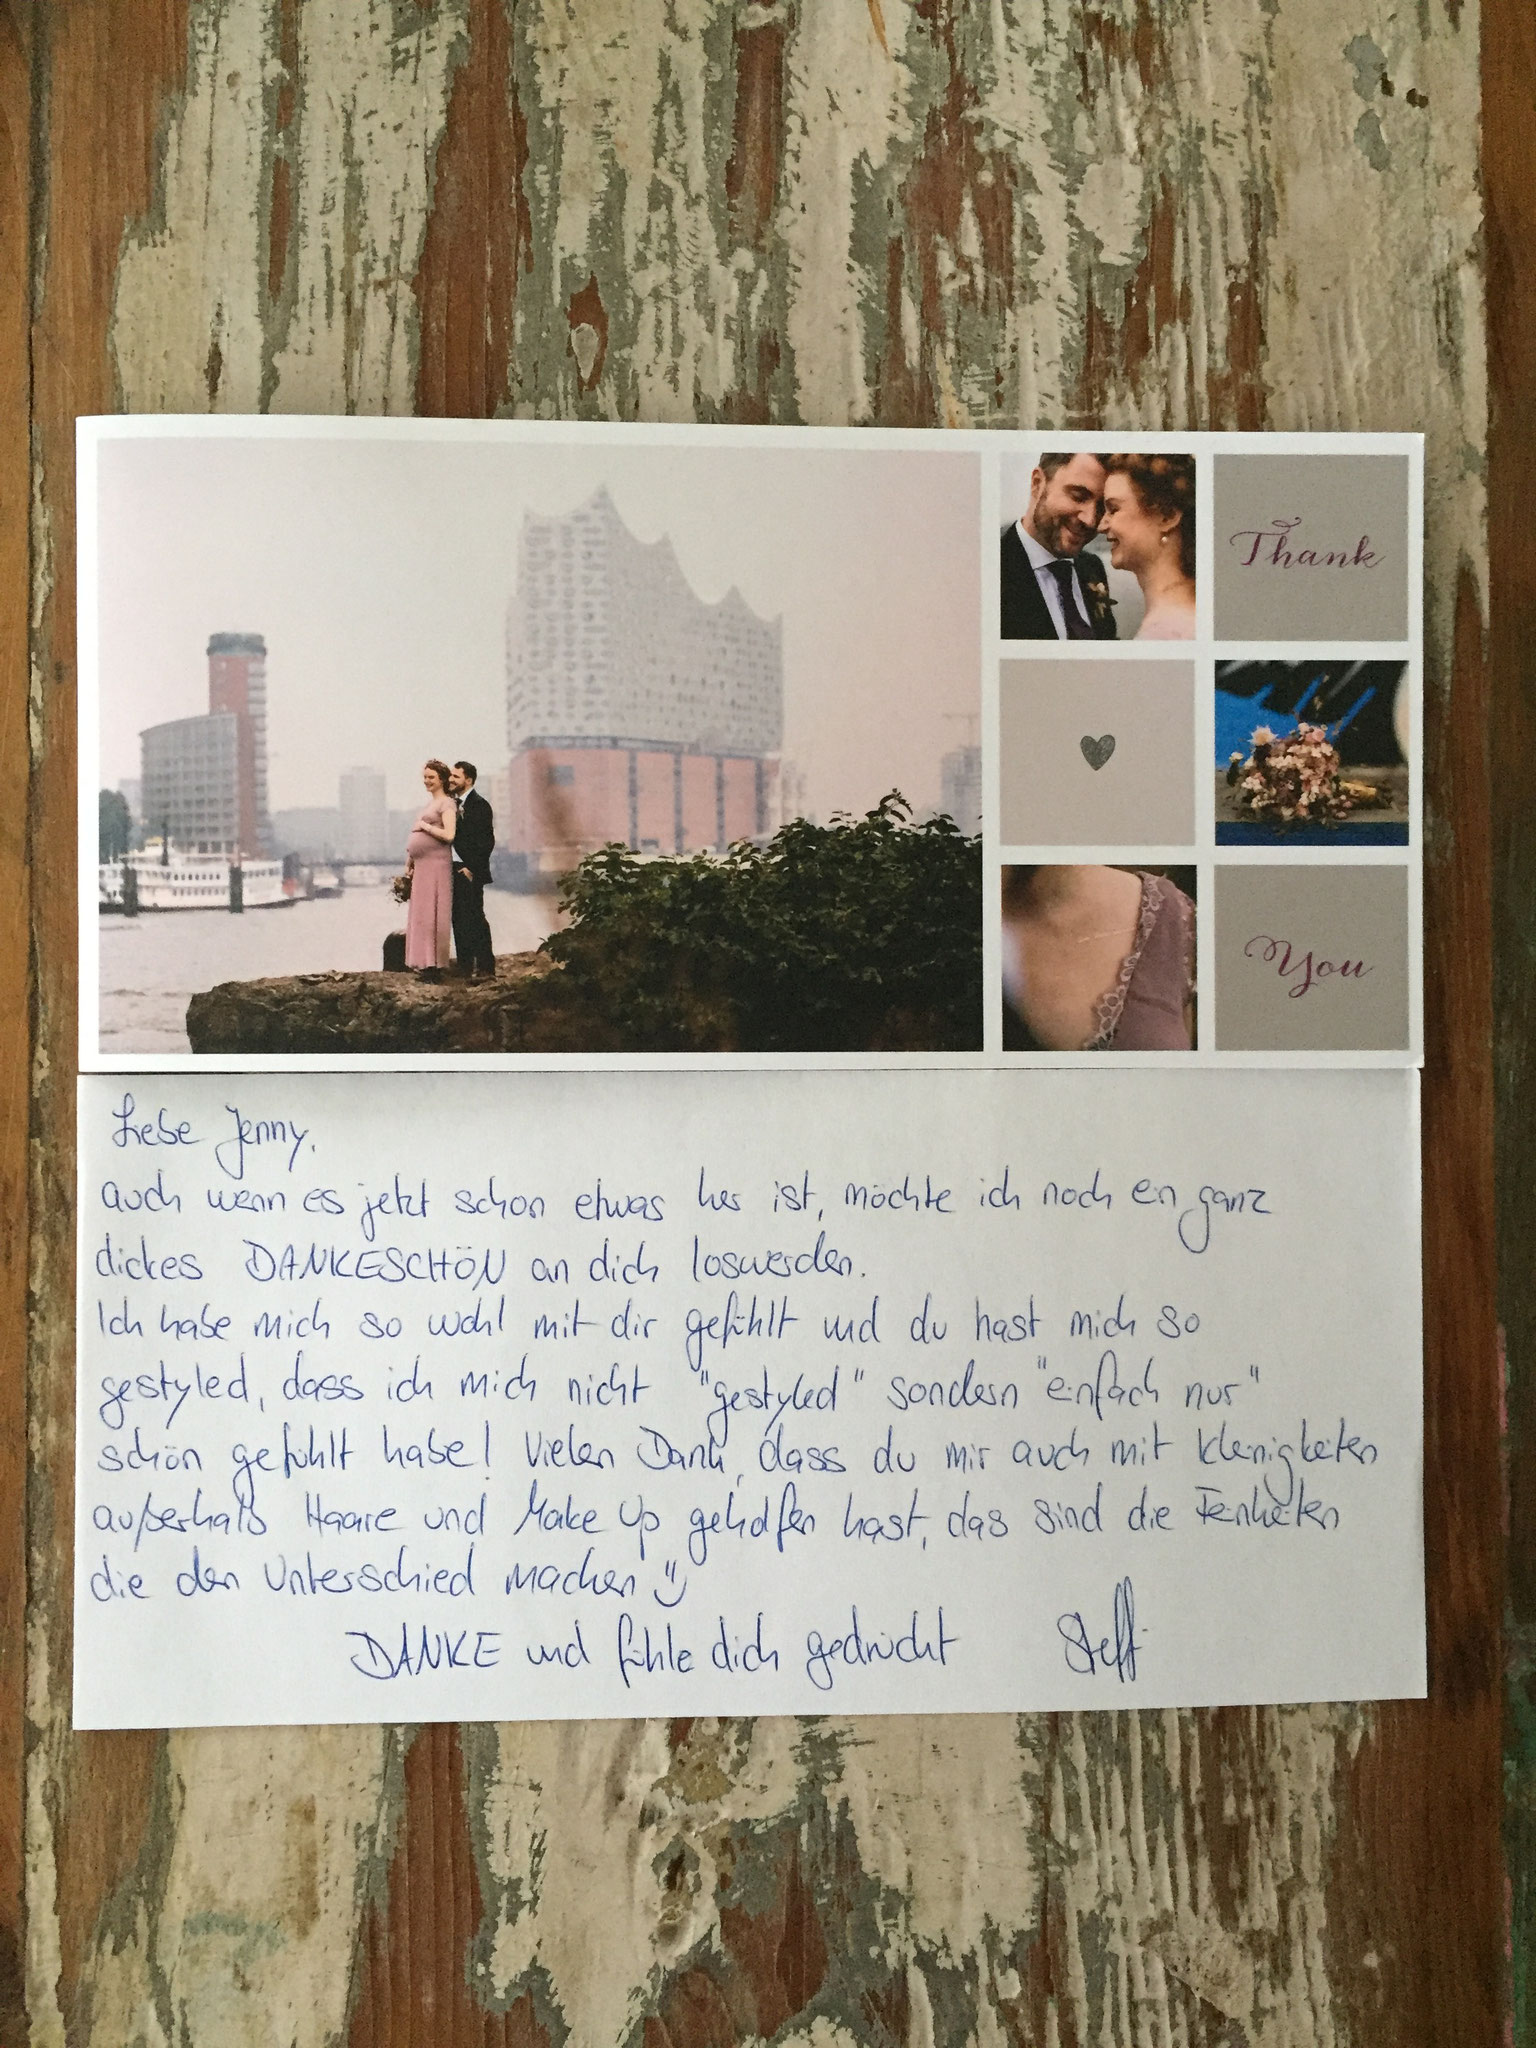 Thank
You
Liebe Jenny,
auch wenn es jetzt schon etwas her ist, möchte ich noch ein ganz
dickes DANKESCHÖN an dich loswerden.
Ich habe mich so wohl mit dir gefühlt und du hast mich so
gestyled, dass ich mich nicht "gestyled" sondern "einfach nur"
schön gefühlt habe! Vielen Dank, dass du mir auch mit Kleinigkeiten
außerhalb Haare und Make Up geholfen hast, das sind die Feinheiten
die den Unterschied machen
DANKE und fühle dich gedrückt Steffi